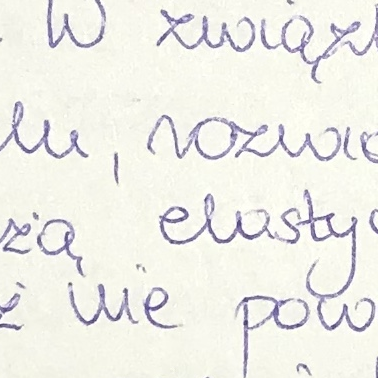 . W związk
lu, rozwia
zią elasty
ż nie pow